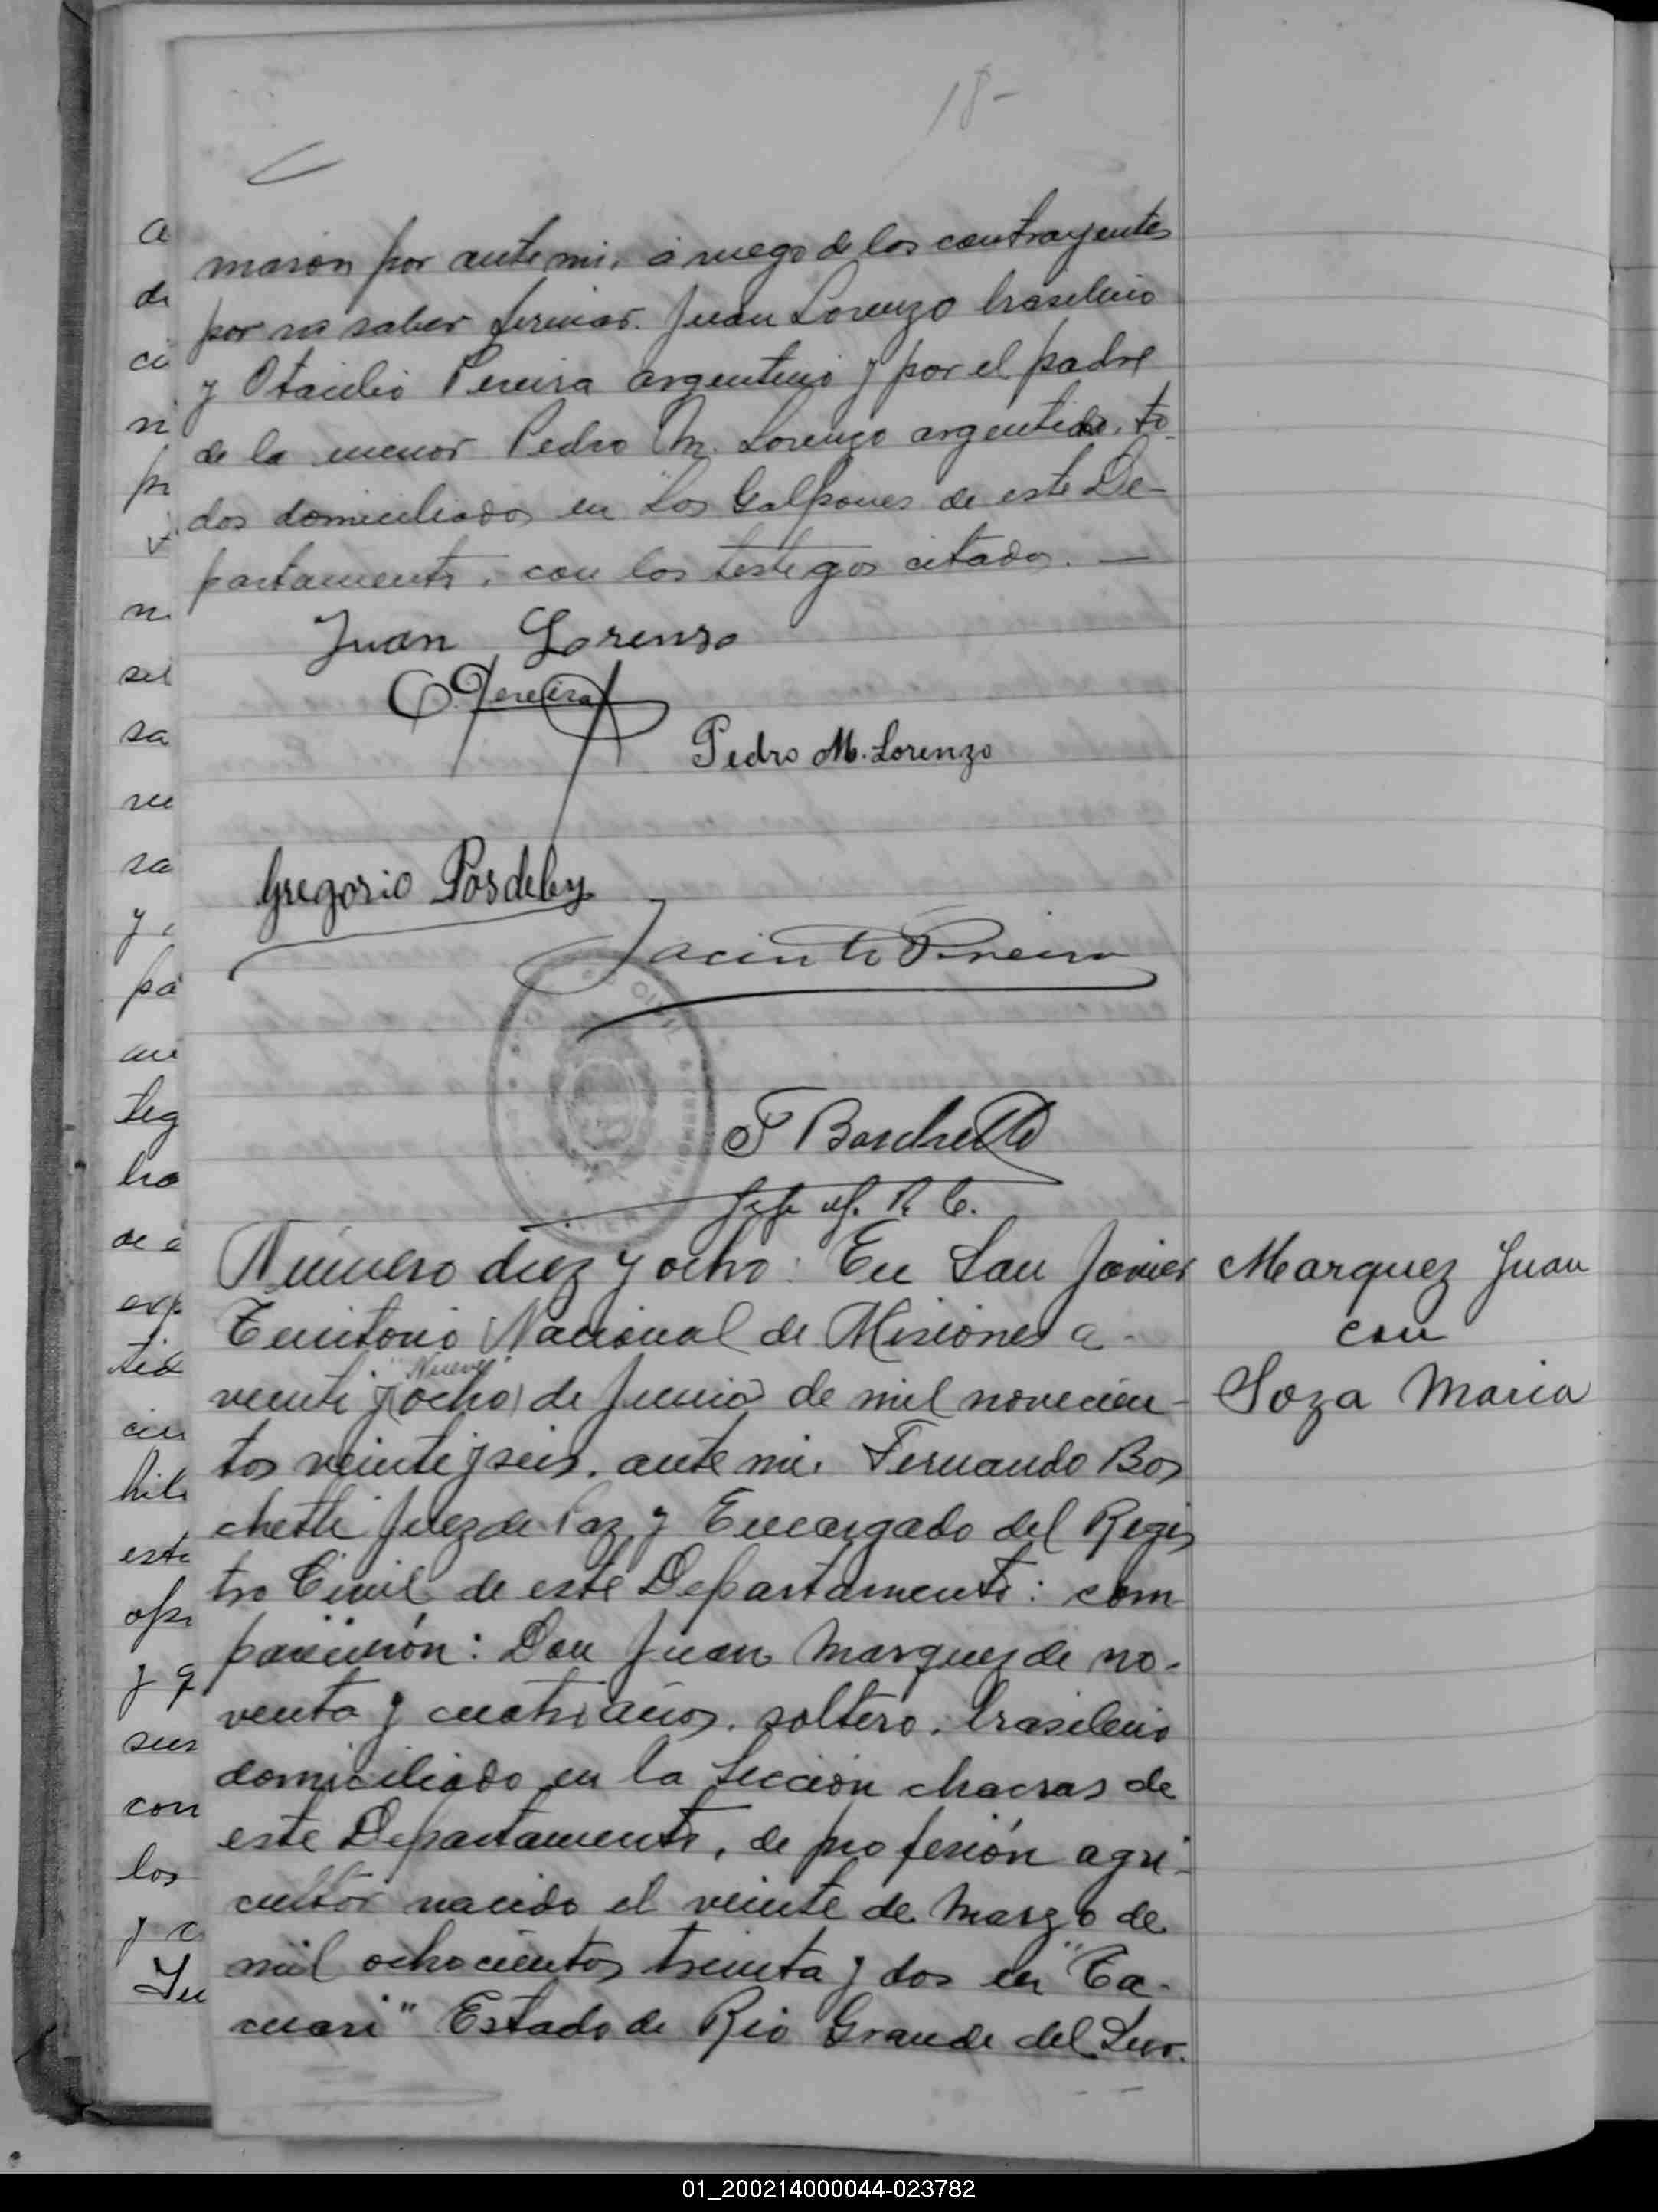 18-
maron por ante mi, a ruego de los contrayentes
por no saber firmar. Juan Lorenzo brasilero
y Otacilio Pereira argentino y por el padre
de la menor Pedro M. Lorenzo argentino, to-
dos domiciliados en Los Galpones de este De-
partamento, con los testigos citados. —
Juan Lorenzo
O. Pereira
Pedro M. Lorenzo
Gregorio Posdeley
Jacinto Pereira
F Boschetti
Jefe del R. C.
Número diez y ocho: En San Javier
Territorio Nacional de Misiones a
"Nueve"
veinte y (ocho) de Junio de mil novecien-
tos veinte y seis, ante mi, Fernando Bos
chetti Juez de Paz y Encargado del Regis
tro Civil de este Departamento: com-
parecieron: Don Juan Marquez de no-
venta y cuatro años, soltero, brasilero
domiciliado en la Sección chacras de
este Departamento, de profesión agri-
cultor nacido el veinte de Marzo de
mil ochocientos treinta y dos en "Ta-
cuari" Estado de Rio Grande del Sur.
Marquez Juan
con
Soza Maria
a
de
ci
ni
pr
n
sel
sa
ra
y
pa
teg
ho
de
exp
tid
cin
hile
este
ops
y q
sus
con
los
y c
Ju
01_200214000044-023782